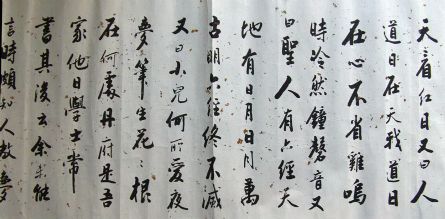 天看红日又曰人
道日在天我道日
在心不省雞鳴
時泠然鐘磬音又
曰聖人有六經天
地有日月日月萬
古明六經終不滅
又曰小兒何所愛夜
夢筆生花花根
在何處丹府是吾
家他日學士常
書其後云余未能
言時頗知人教夢